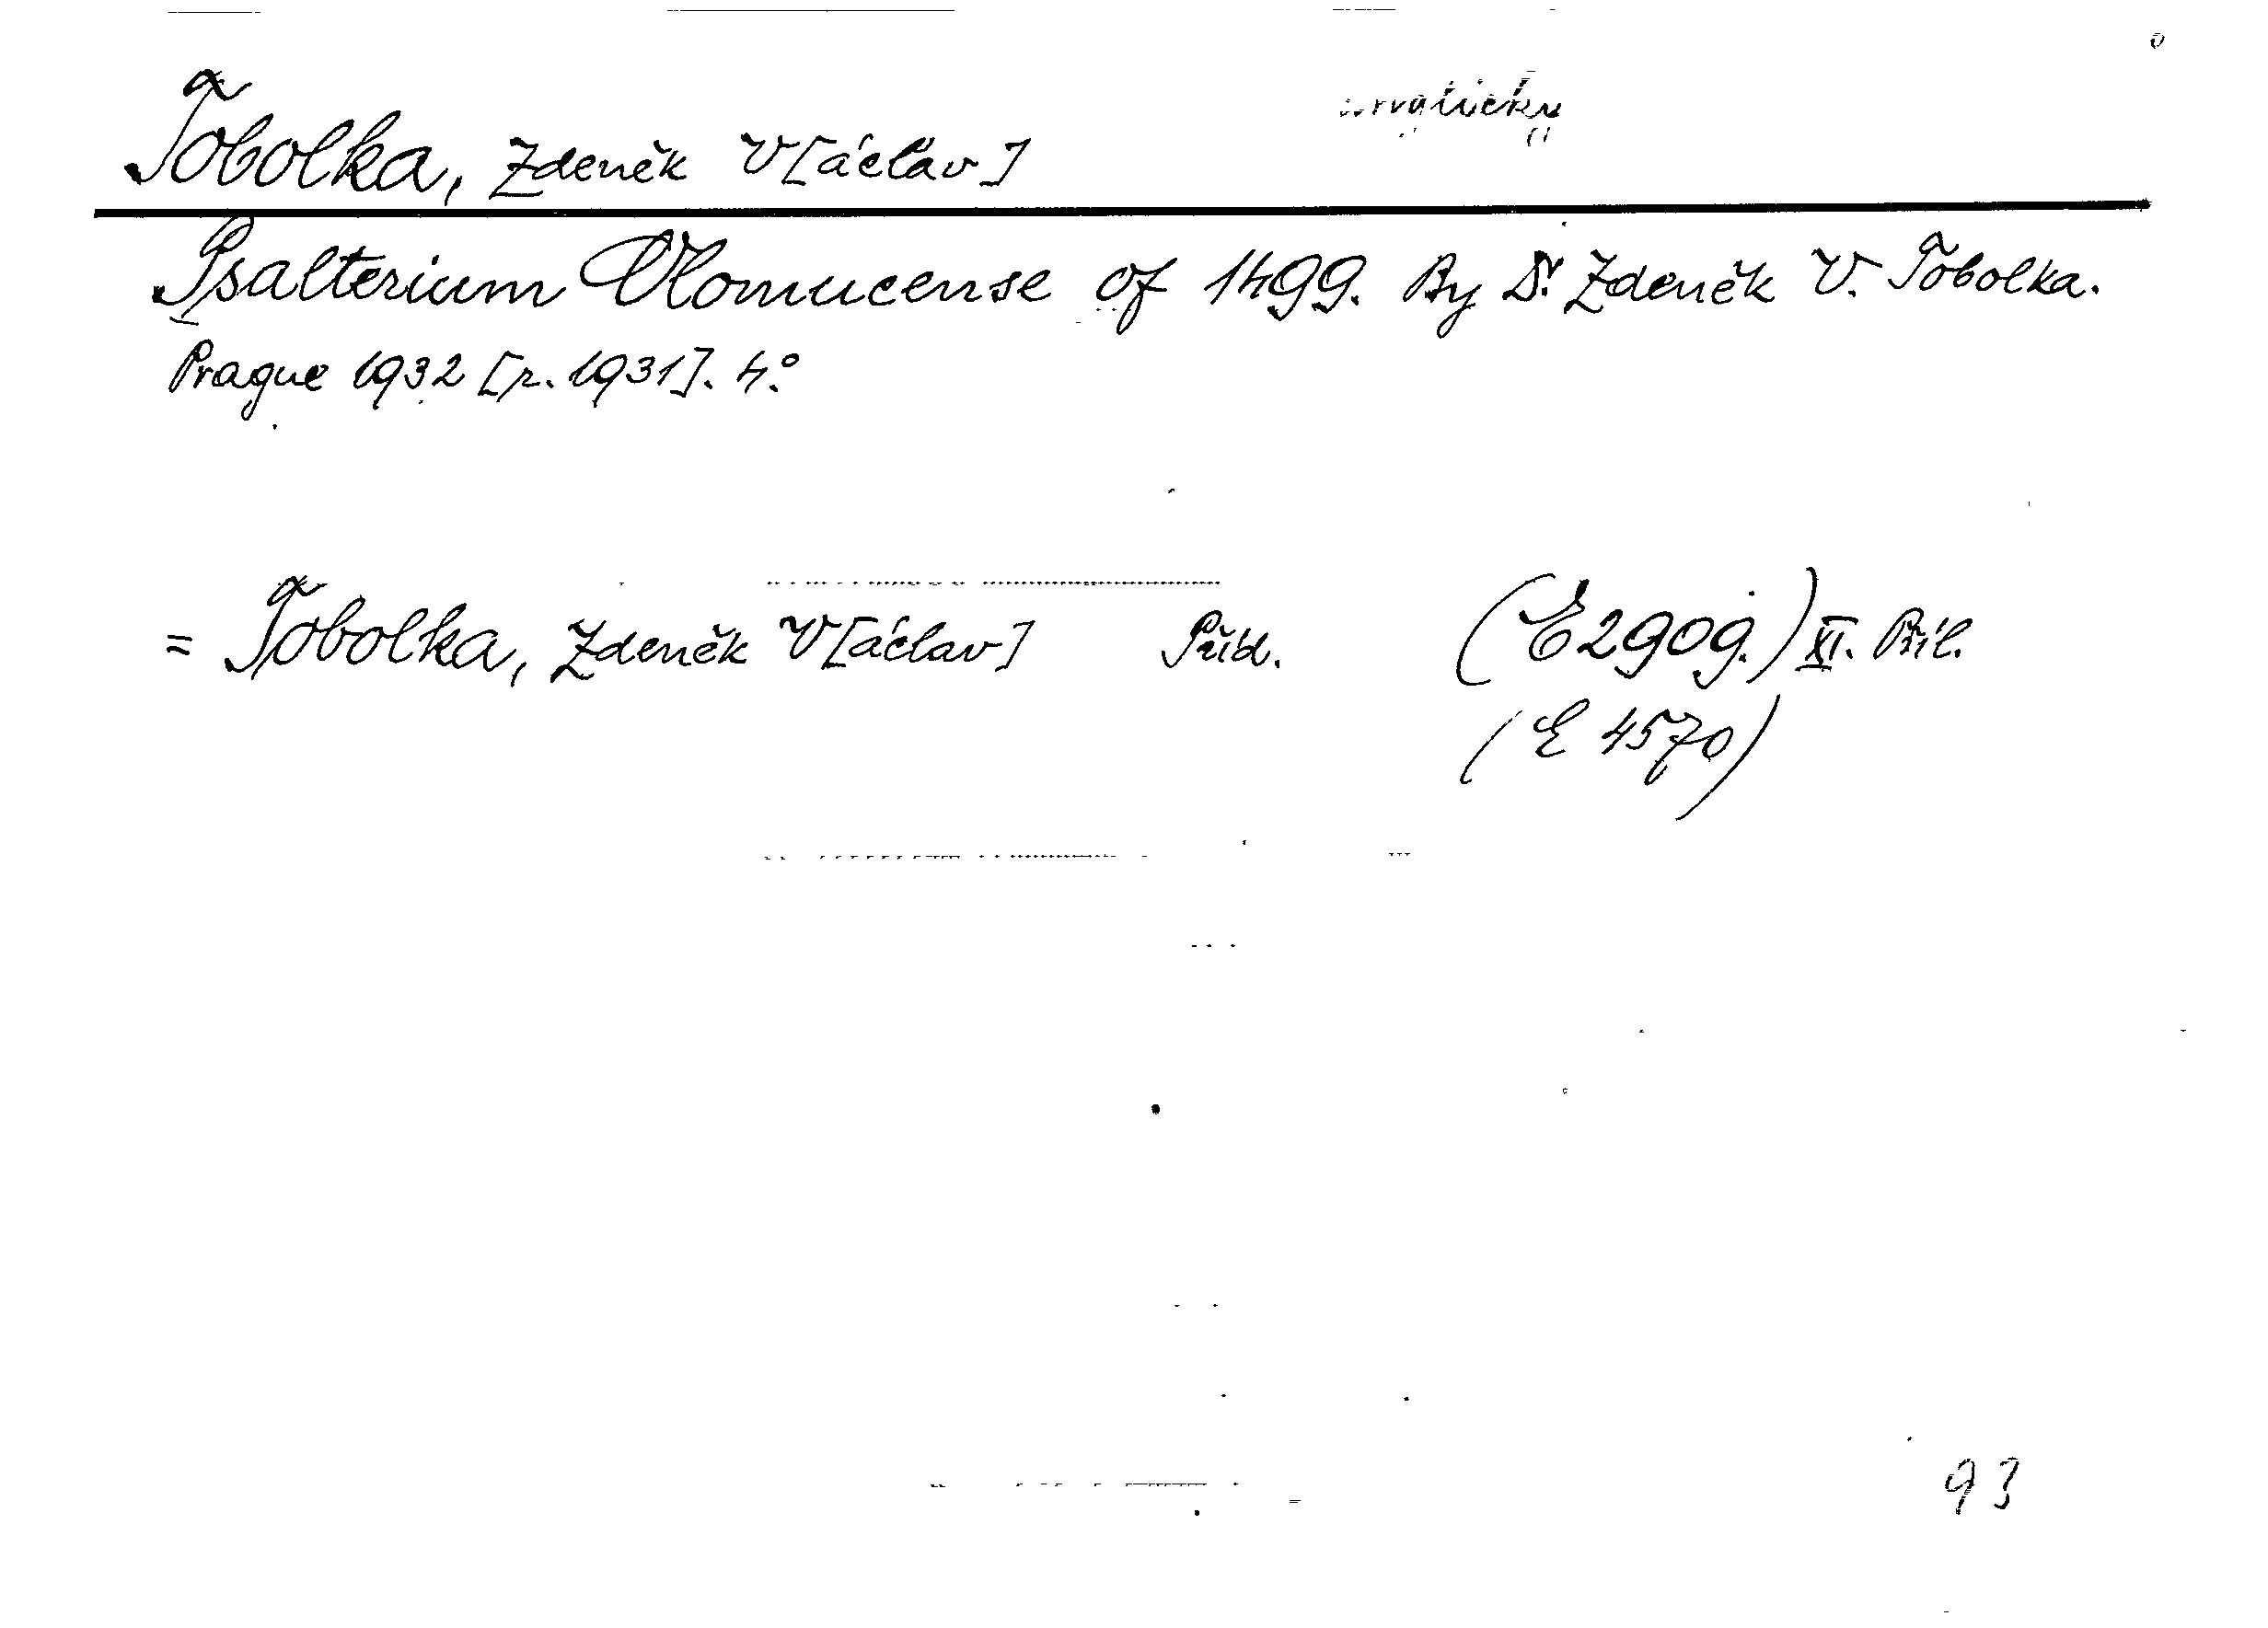 Tobolka, Zdeněk V[áclav]
Psalterium Olomucense of 1499. By Dr. Zdeněk V. Tobolka.
Prague 1932 [r. 1931]. 4°.
= Tobolka, Zdeněk V[áclav] Příd. (E 2909.) XI. Příl.
(E 4570)
93